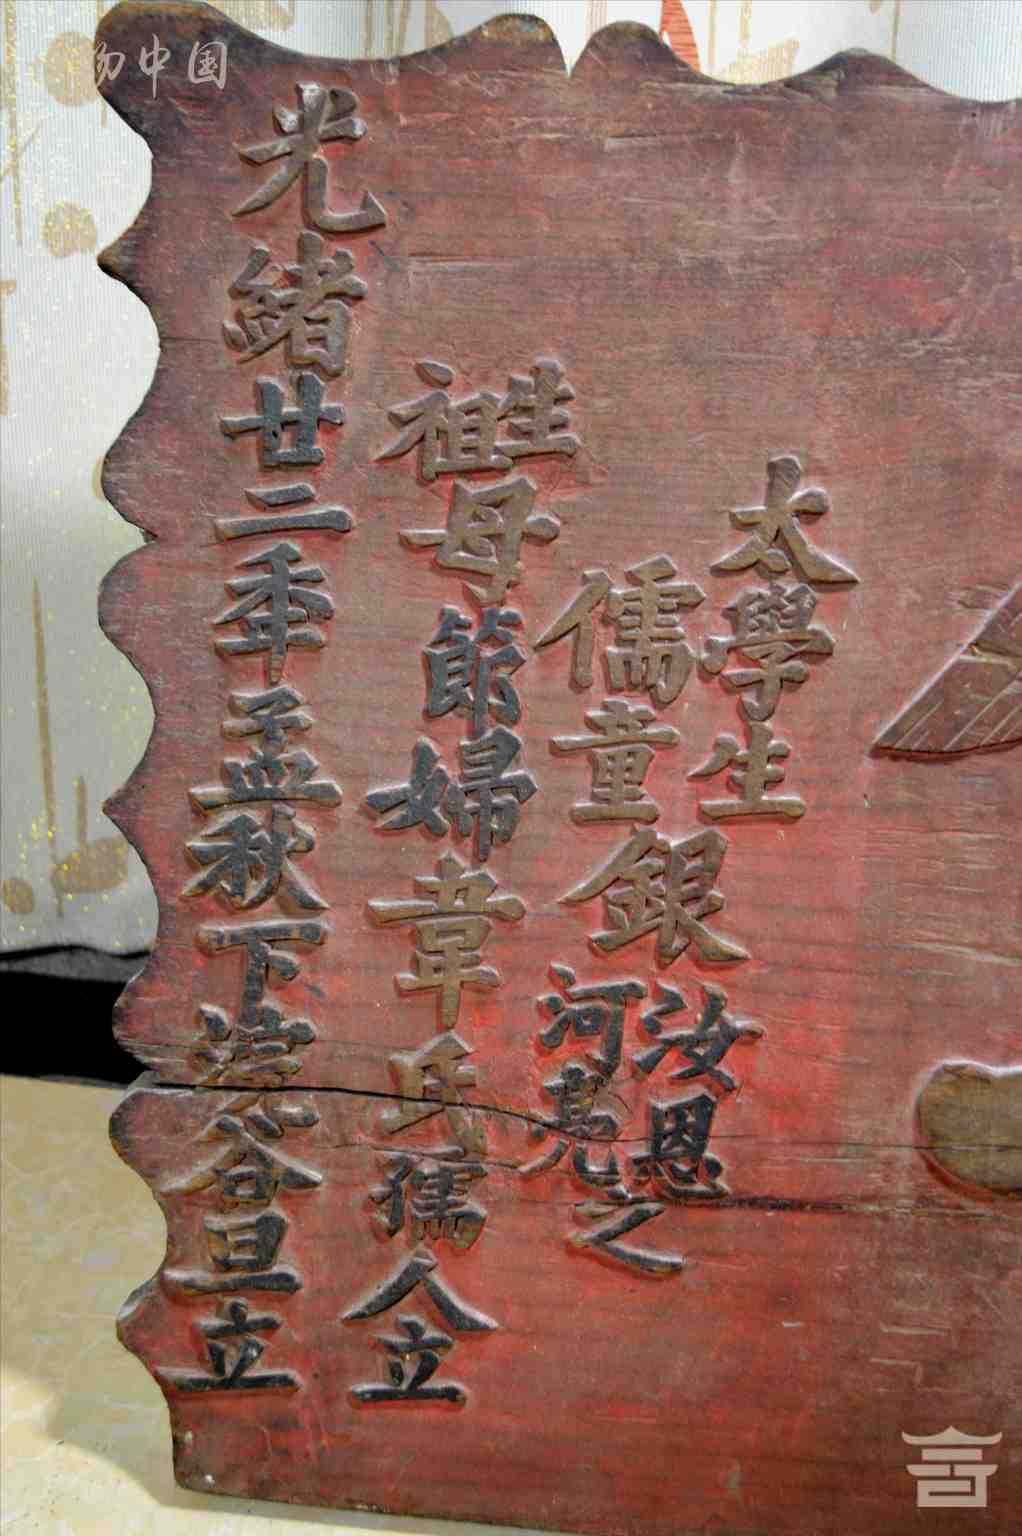 太學生
儒童銀汝恩河亮之
生祖母節婦韋氏孺人立
光緒廿二年孟秋下浣谷旦立
中国